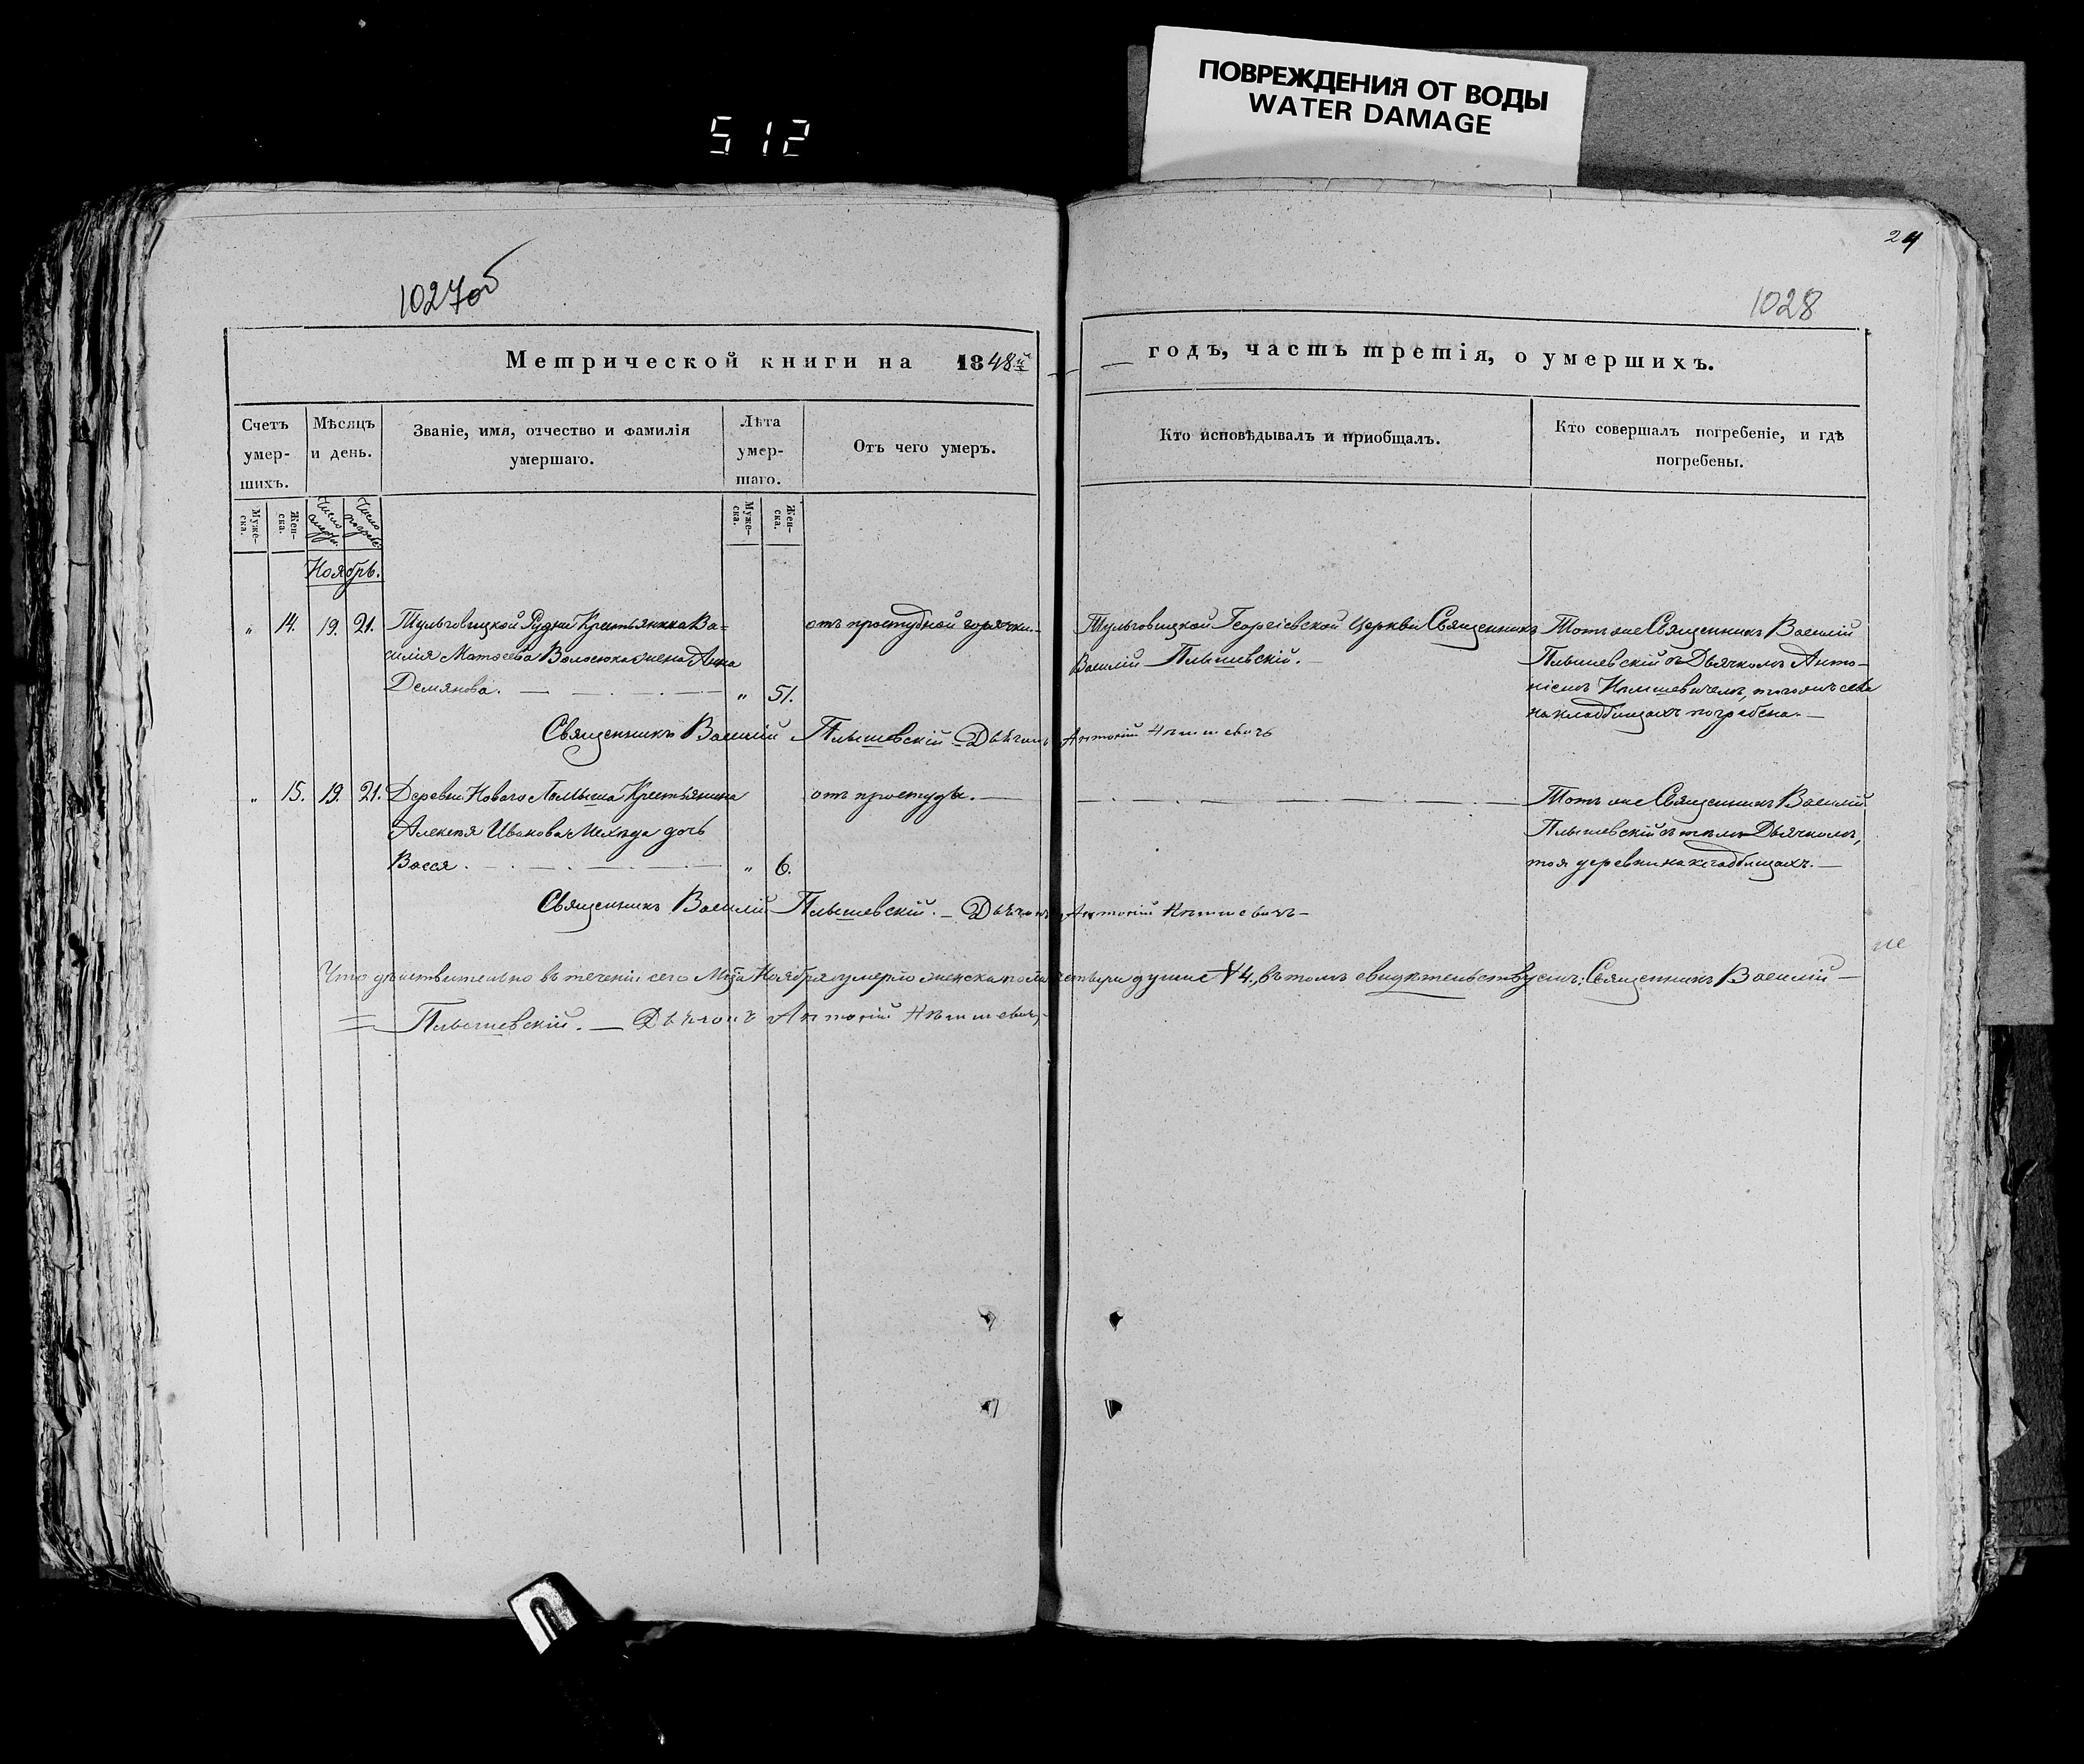 ПОВРЕЖДЕНИЯ ОТ ВОДЫ
WATER DAMAGE
512
24
1027об
1028
Метрической книги на 1848й
годъ, часть третія, о умершихъ.
Счетъ умер-шихъ.
Мѣсяцъ и день.
Званіе, имя, отчество и фамилія умершаго.
Лѣта умер-шаго.
Отъ чего умеръ.
Кто исповѣдывалъ и пріобщалъ.
Кто совершалъ погребеніе, и гдѣ погребены.
Муже-ска.
Жен-ска.
Число
Число
Муже-ска.
Жен-ска.
Ноябрь.
„ 14. 19. 21.
Тульговицкой Рудни Крестьянина Ва=
силія Матѳеева Волосюка жена Анна
Демянова. „ 51.
отъ простудной горячки.
Тульговицкой Георгіевской Церкви Священникъ
Василій Плышевскій.
Тотъ же Священникъ Василій
Плышевскій съ Дьячкомъ Анто-
ніемъ
на кладбищахъ погребена.
Священникъ Василій Плышевскій Дьячокъ Антоній
„ 15. 19. 21.
Деревни Новаго Крестьянина
Алексѣя Иванова дочь
Васса. „ 6.
отъ простуды.
Тотъ же Священникъ Василій
Плышевскій съ тѣмъ Дьячкомъ,
тоя деревни на кладбищахъ.
Священникъ Василій Плышевскій. Дьячокъ Антоній
Что дѣйствительно въ теченіи сего Мца Ноября умерло женска пола четыри души № 4., въ томъ свидѣтельствуемъ: Священникъ Василій
Плышевскій. Дьячокъ Антоній